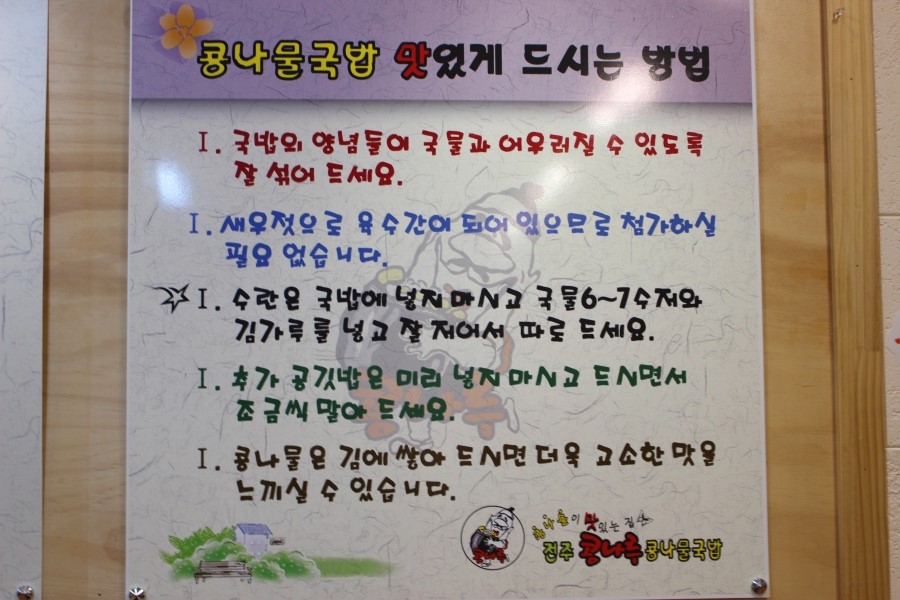 콩나물국밥 맛있게 드시는 방법
I. 국밥의 양념들이 국물과 어우러질 수 있도록
잘 섞어 드세요.
I. 새우젓으로 육수간이 되어 있으므로 첨가하실
필요 없습니다.
I. 수란은 국밥에 넣지 마시고 국물6~7수저와
김가루를 넣고 잘 저어서 따로 드세요.
I. 추가 공깃밥은 미리 넣지 마시고 드시면서
조금씩 말아 드세요.
I. 콩나물은 김에 쌓아 드시면 더욱 고소한 맛을
느끼실 수 있습니다.
콩나물이 맛있는 집
전주 콩나루 콩나물국밥
콩나루